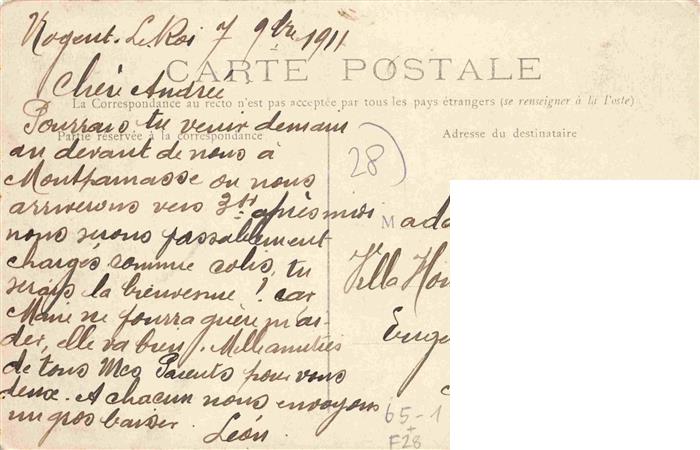 Nogent-Le Roi 7 9bre 1911
CARTE POSTALE
Chère Andrée
La Correspondance au recto n'est pas acceptée par tous les pays étrangers (se renseigner à la Poste)
Partie réservée à la correspondance
Adresse du destinataire
Pourrais tu venir demain
au devant de nous à
Montparnasse ou nous
arriverons vers 3H après midi
nous serons passablement
chargés comme colis, tu
serais la bienvenue ! car
Marie ne pourra guère m'ai-
der, elle va bien. Mille amitiés
de tous Mes Parents pour vous
deux. A chacun nous envoyons
un gros baiser.
Léon.
28)
Mada
Villa Hou
Euge
65-1
+
F28